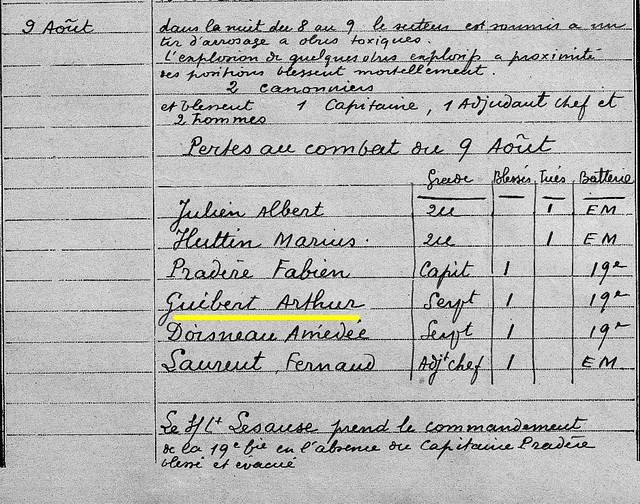 9 Août
dans la nuit du 8 au 9 le secteur est soumis a un
tir d'arrosage a obus toxiques.
L'explosion de quelques obus explosifs a proximité
des positions blessent mortellement.
2 canonniers
et blessent 1 Capitaine, 1 Adjudant Chef et
2 hommes
Pertes au combat du 9 Août
Grade Blessés Tués Batterie
Julien Albert 2e 1 EM
Huttin Marius. 2e 1 EM
Pradère Fabien Capit 1 19e
Guibert Arthur Sergt 1 19e
Doisneau Amédée Sergt 1 19e
Laurent, Fernaud Adjt chef 1 EM
Le S/Lt Lesause prend le commandement
de la 19e bie en l'absence du Capitaine Pradère
blessé et évacué